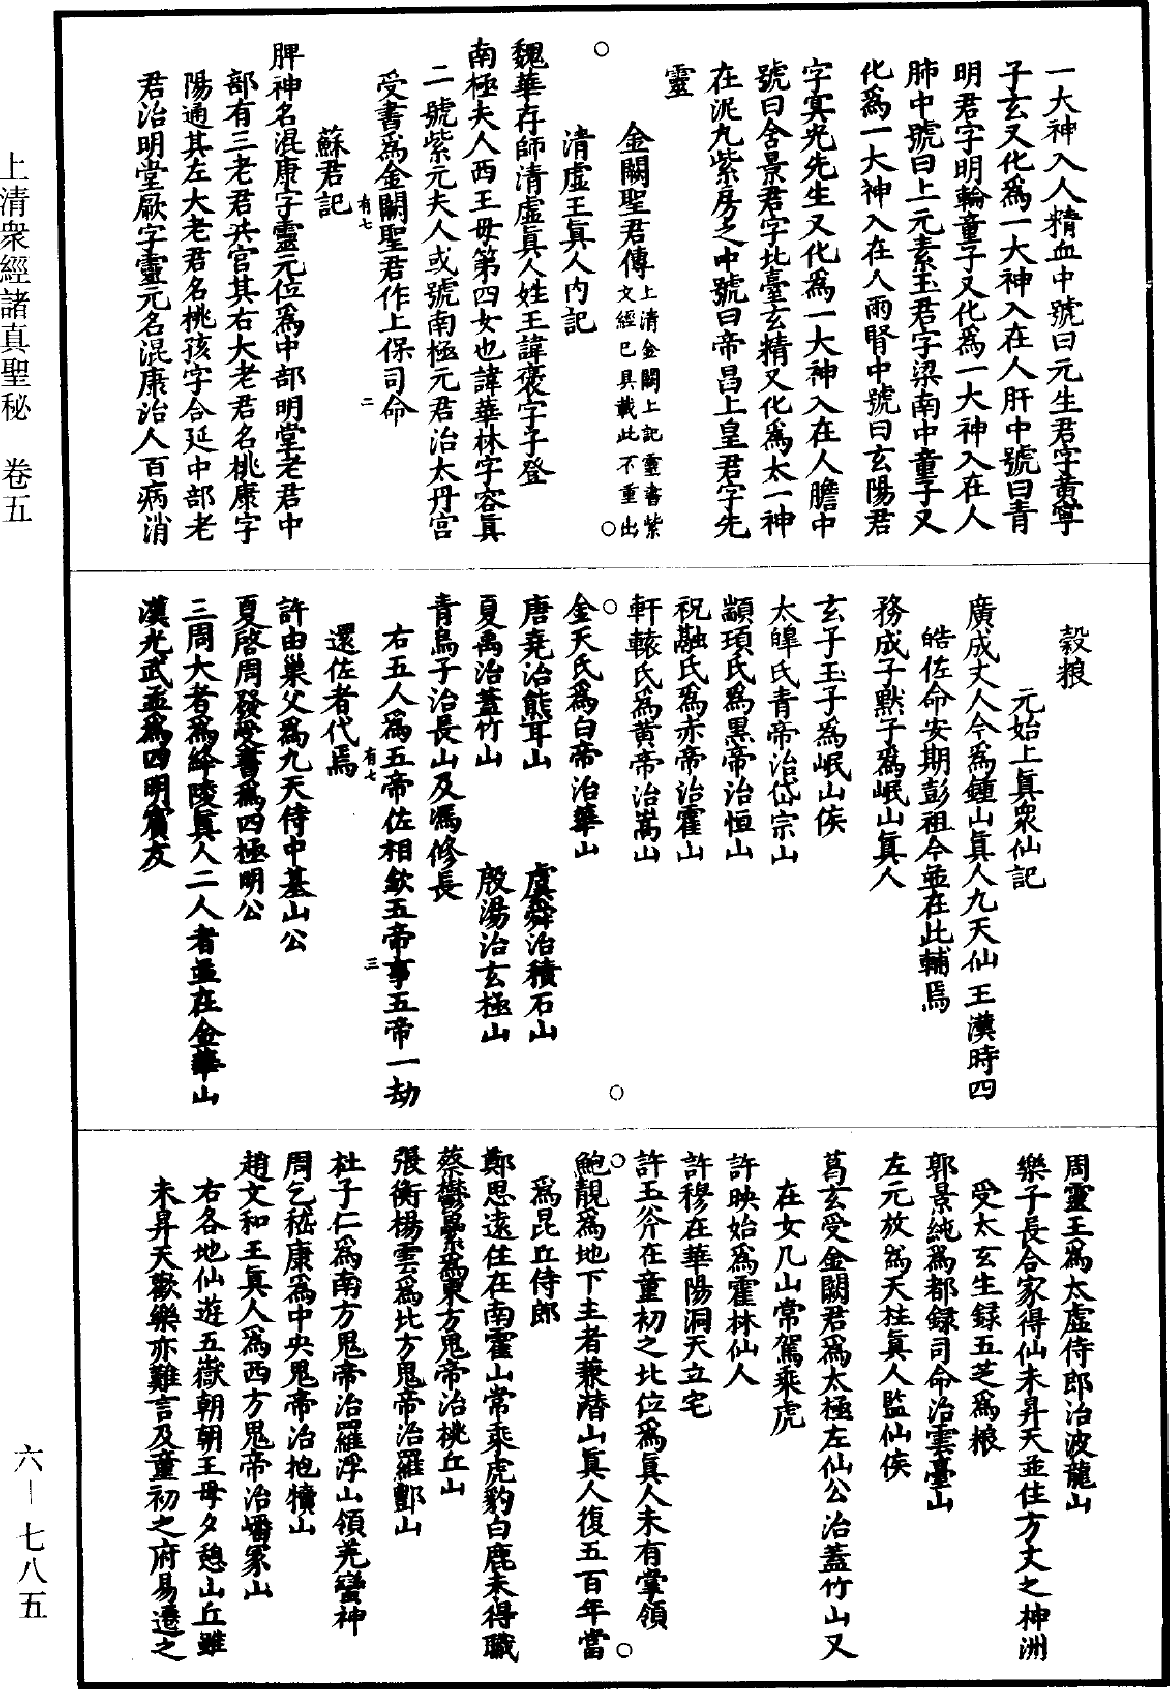 一大神入人精血中號曰元生君字黃寧
子玄又化爲一大神入在人肝中號曰青
明君字明輪童子又化爲一大神入在人
肺中號曰上元素玉君字梁南中童子又
化爲一大神入在人兩腎中號曰玄陽君
字㝠光先生又化爲一大神入在人膽中
號曰含景君字北臺玄精又化爲太一神
在泥丸紫房之中號曰帝昌上皇君字先
靈
金闕聖君傳上清金闕上記靈書紫
文經已具載此不重出
清虛王眞人內記
魏華存師清虛眞人姓王諱褒字子登
南極夫人西王母第四女也諱華林字容眞
一號紫元夫人或號南極元君治太丹宮
受書爲金闕聖君作上保司命
有七
二
蘇君記
脾神名混康字靈元位爲中部明堂老君中
部有三老君共宮其右大老君名桃康字
陽通其左大老君名桃孩字合延中部老
君治明堂厥字靈元名混康治人百病消
穀粮
元始上眞衆仙記
廣成丈人今爲鍾山眞人九天仙王漢時四
皓佐命安期彭祖今並在此輔焉
務成子默子爲岷山眞人
玄子玉子爲岷山侯
太皥氏青帝治岱宗山
顓頊氏爲黑帝治恒山
祝融氏爲赤帝治霍山
軒轅氏爲黃帝治嵩山
金天氏爲白帝治華山
唐堯治熊耳山 虞舜治積石山
夏禹治蓋竹山 殷湯治玄極山
青烏子治長山及馮修長
右五人爲五帝佐相欽五帝事五帝一劫
有七
三
還佐者代焉
許由巢父爲九天侍中基山公
夏啓周發受書爲四極明公
三周大者爲絳陵眞人二人者並在金華山
漢光武並爲四明賓友
周靈王爲太虛侍郎治波龍山
樂子長合家得仙未昇天並住方丈之神洲
受太玄生録五芝爲粮
郭景純爲都録司命治雲臺山
左元放爲天柱眞人監仙侯
葛玄受金闕君爲太極左仙公治蓋竹山又
在女几山常駕乘虎
許映始爲霍林仙人
許穆在華陽洞天立宅
許玉斧在童初之北位爲眞人未有掌領
鮑靚爲地下主者兼潜山眞人復五百年當
爲昆丘侍郎
鄭思遠住在南霍山常乘虎豹白鹿未得職
蔡鬱壘爲東方鬼帝治桃丘山
張衡楊雲爲北方鬼帝治羅酆山
杜子仁爲南方鬼帝治羅浮山領羌蠻神
周乞嵇康爲中央鬼帝治抱犢山
趙文和王眞人爲西方鬼帝治嶓冢山
右各地仙遊五嶽朝朝王母夕憩山丘雖
未昇天歡樂亦難言及童初之府易遷之
上清衆經諸真聖秘 卷五
六—七八五